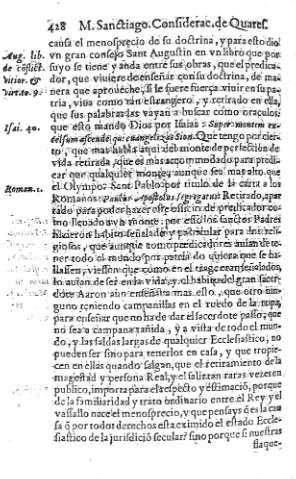 428 M. Sanctiago. Considerac. de Quares.
causa el menosprecio de su doctrina, y para esto dio
Aug. lib. vn gran consejo Sant Augustin en vn libro que por
de cõflict. suyo se tiene y anda entre sus obras, que el predica-
vitior. & dor, que viuiere do enseñar con su doctrina, de ma-
virtu. 9. nera que aproueche, si le fuere fuerça viuir en su pa-
tria, viua como tan estrangero, y retirado en ella,
que sus palabras las vayan a buscar como oraculos
Isai. 40. que esto mando Dios por Isaias: Super montem ex
celsum ascende qui euangelizas Sion. Que tengo por cier-
to, que mas habla aqui del monte de perfeccion de
vida retirada, que es mas acommodado para predi-
car que qualquier monte, aunque sea mas alto que
el Olympo. Sant Pablo por titulo de la carta a los
Roman. 1. Romanos: Paulus Apostolus segregatus: Retirado, apar
tado para poder hazer este officio de predicador co-
mo lleuado a vn monte: por esso los sanctos Padres
hizieron habito señalado y particular para los reli-
giosos, que aunque como predicadores auian de te-
ner todo el mundo por patria do quiera que se ha-
llassen, viessen que como en el trage eran señalados,
lo auian de ser en la vida, y el habito del gran sacer-
dote Aaron aun enseña mas esto, que otro nin-
guno teniendo campanillas en el ruedo de la ropa,
para enseñar que no ha de dar el sacerdote passo, que
no sea a campana tañida, y a vista de todo el mun-
do, y las faldas largas de qualquier Ecclesiastico, no
pueden ser sino para tenerlos en casa, y que tropie-
cen en ellas quando salgan, que el retiramiento de la
magestad y persona Real, y el salir tan raras vezes en
publico, importa para el respecto y estimació, porque
de la familiaridad y trato ordinario entre el Rey y el
vassallo nace el menosprecio, y que pensays q̃ es la cau
sa q̃ por todos derechos esta eximido el estado Eccle-
siastico de la jurisdició secular? sino porque si nuestras
flaque-